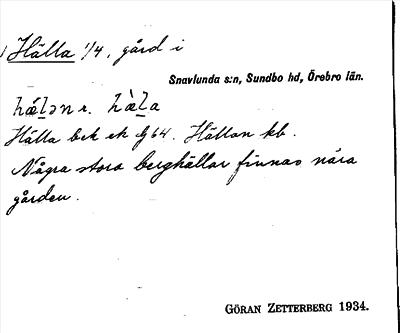 Hälla 1/4, gård i
Snavlunda s:n, Sundbo hd, Örebro län.
hälən r. hàla
Hälla bck ek G 64. Hällan kb.
Några stora berghällar finnas nära
gården.
GÖRAN ZETTERBERG 1934.